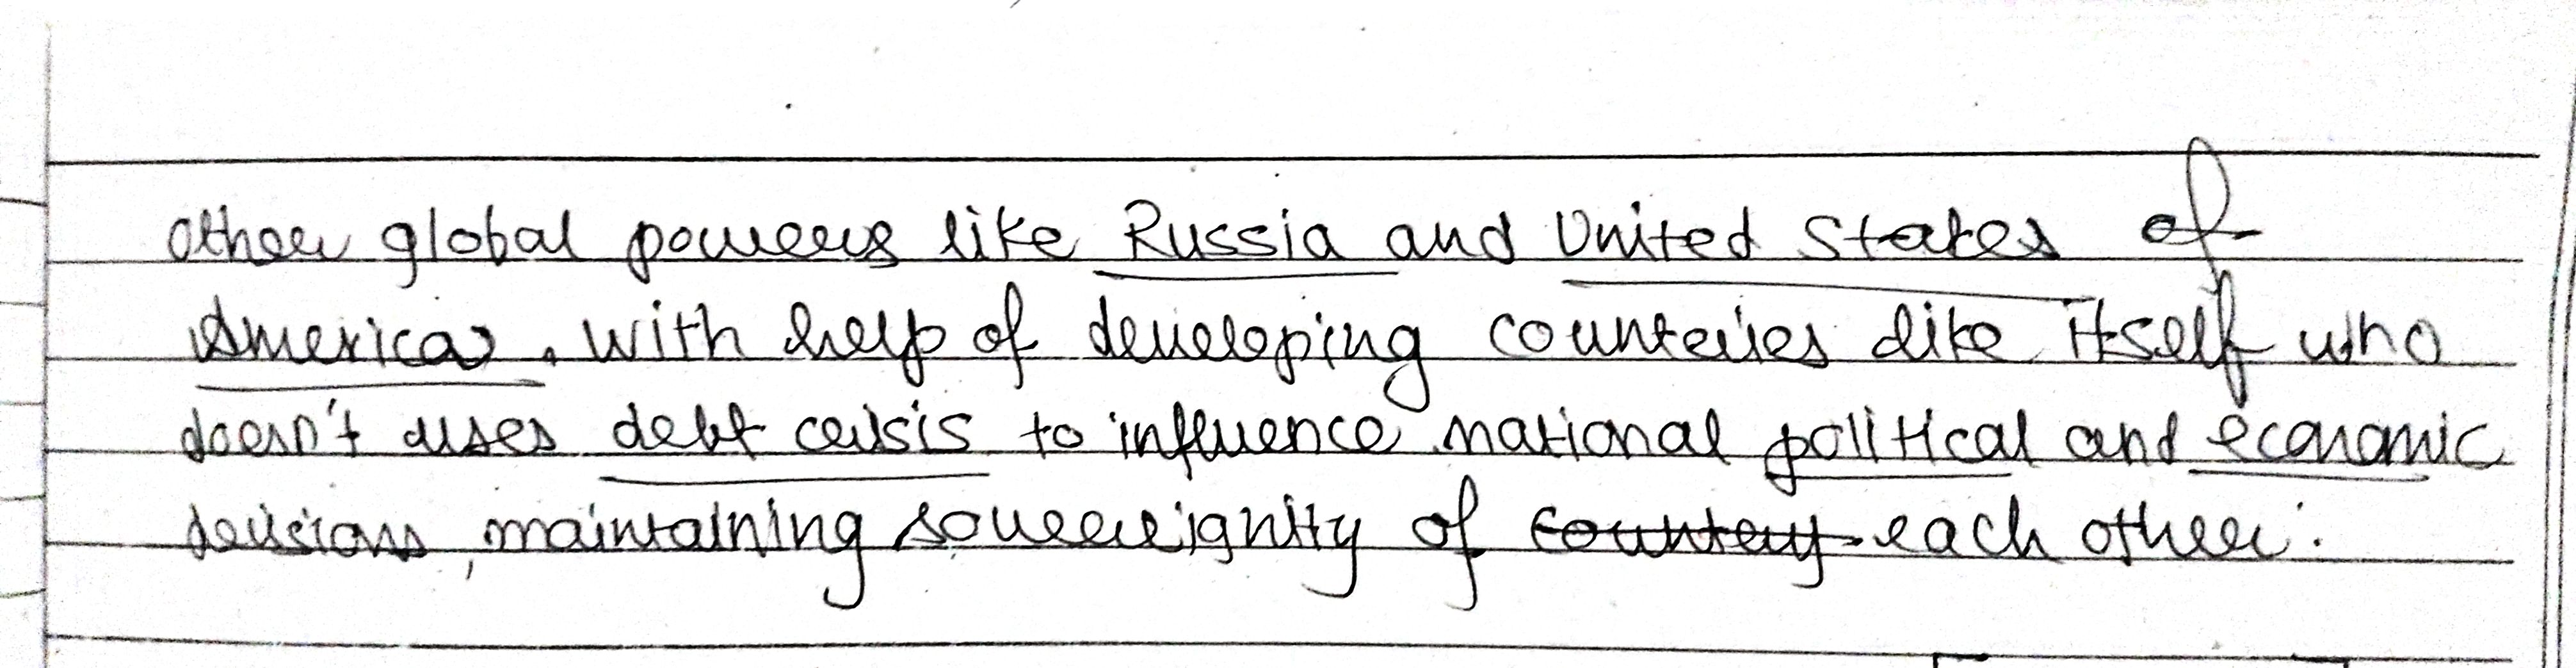 other global powers like Russia and United States of
America. With help of developing countries like itself who
doesn't uses debt crisis to influence national political and economic
decisions, maintaining sovereignity of country each other.